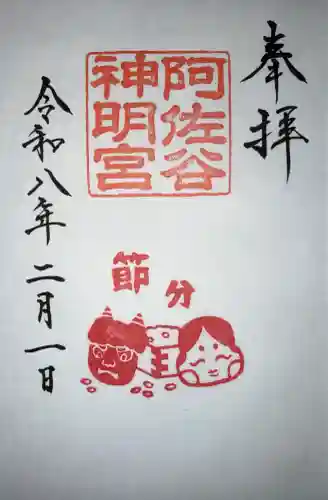 奉拝
阿佐谷
神明宮
節分
令和八年二月一日